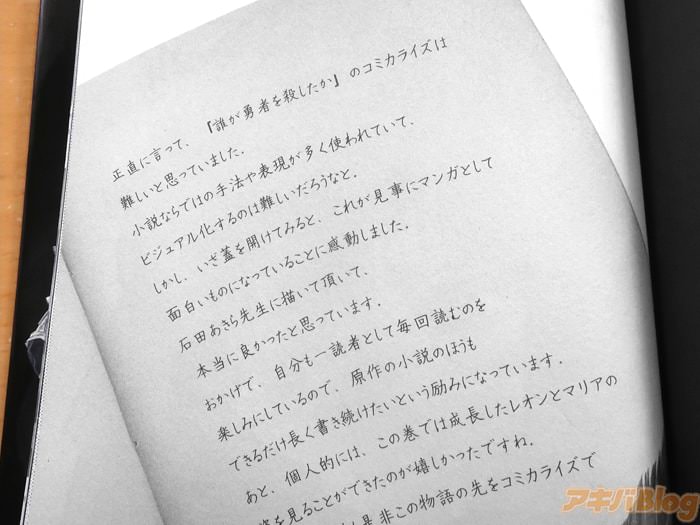 正直に言って、『誰が勇者を殺したか』のコミカライズは
難しいと思っていました．
小説ならではの手法や表現が多く使われていて、
ビジュアル化するのは難しいだろうなと．
しかし、いざ蓋を開けてみると、これが見事にマンガとして
面白いものになっていることに感動しました．
石田あきら先生に描いて頂いて、
本当に良かったと思っています．
おかげで、自分も一読者として毎回読むのを
楽しみにしているので、原作の小説のほうも
できるだけ長く書き続けたいという励みになっています．
あと、個人的には、この巻では成長したレオンとマリアの
姿を見ることができたのが嬉しかったですね．
是非この物語の先をコミカライズで
アキバBlog